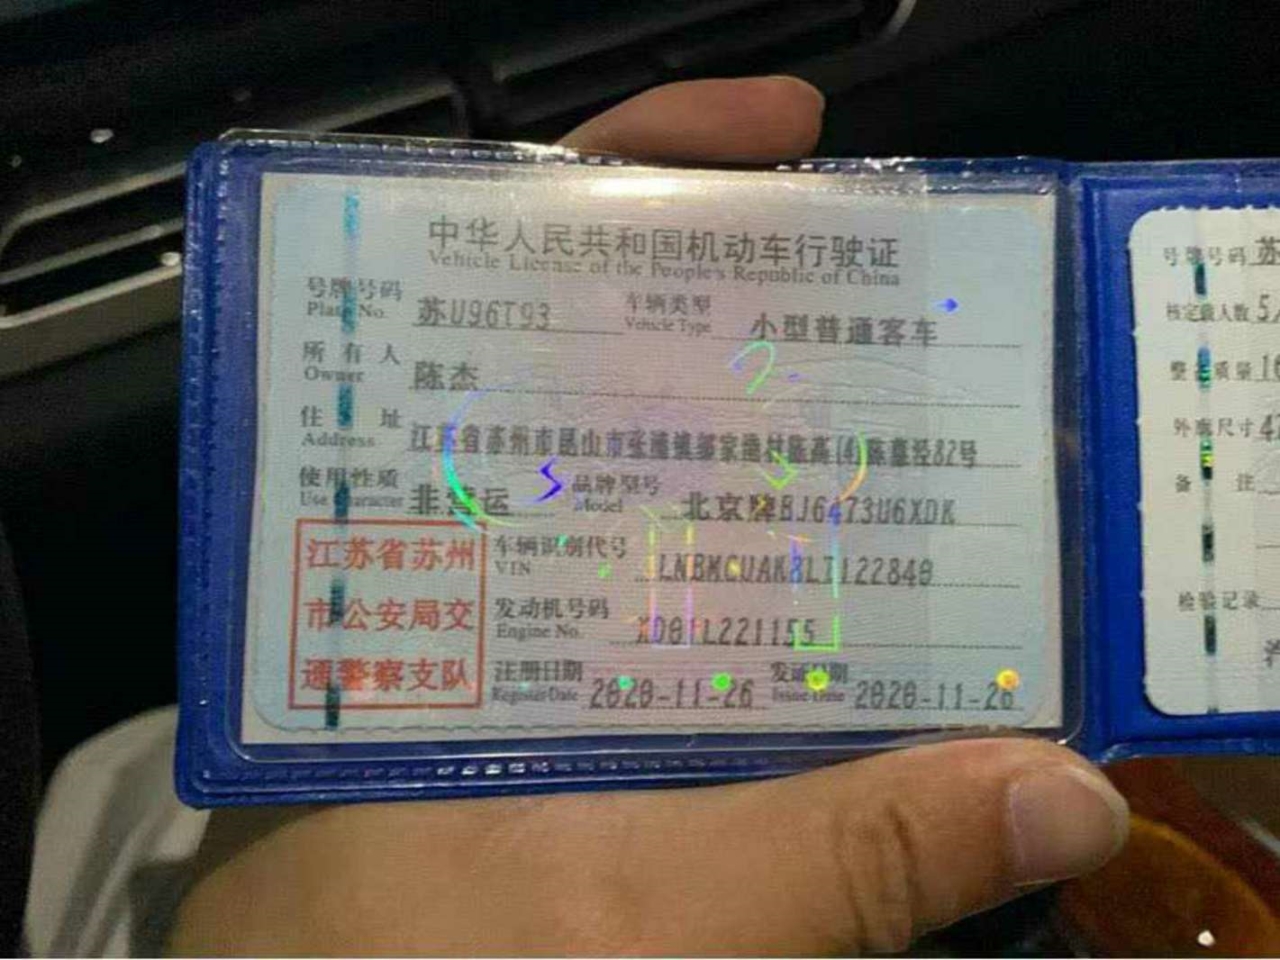 中华人民共和国机动车行驶证
Vehicle License of the People's Republic of China
号牌号码 苏U96T93 车辆类型 小型普通客车
Plate No. Vehicle Type
所有人 陈杰
Owner
住址 江苏省苏州市昆山市张浦镇
Address
使用性质 非营运 品牌型号 北京牌BJ6473U6XDK
Use Character Model
江苏省苏州
市公安局交
通警察支队
车辆识别代号
VIN
发动机号码
Engine No.
注册日期 2020-11-26 发证日期 2020-11-26
Register Date Issue Date
号牌号码 苏
核定载人数 5
整备质量 16
外廓尺寸 4
备注
检验记录